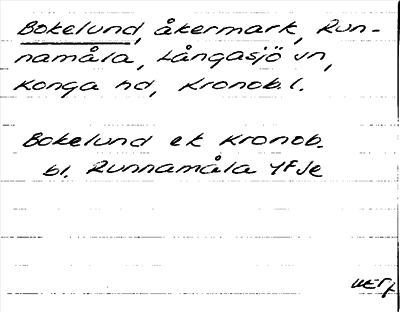 Bokelund, åkermark, Run-
namåla, Långasjö sn,
Konga hd, Kronob. l.
Bokelund ek Kronob.
bl. Runnamåla 4F5e